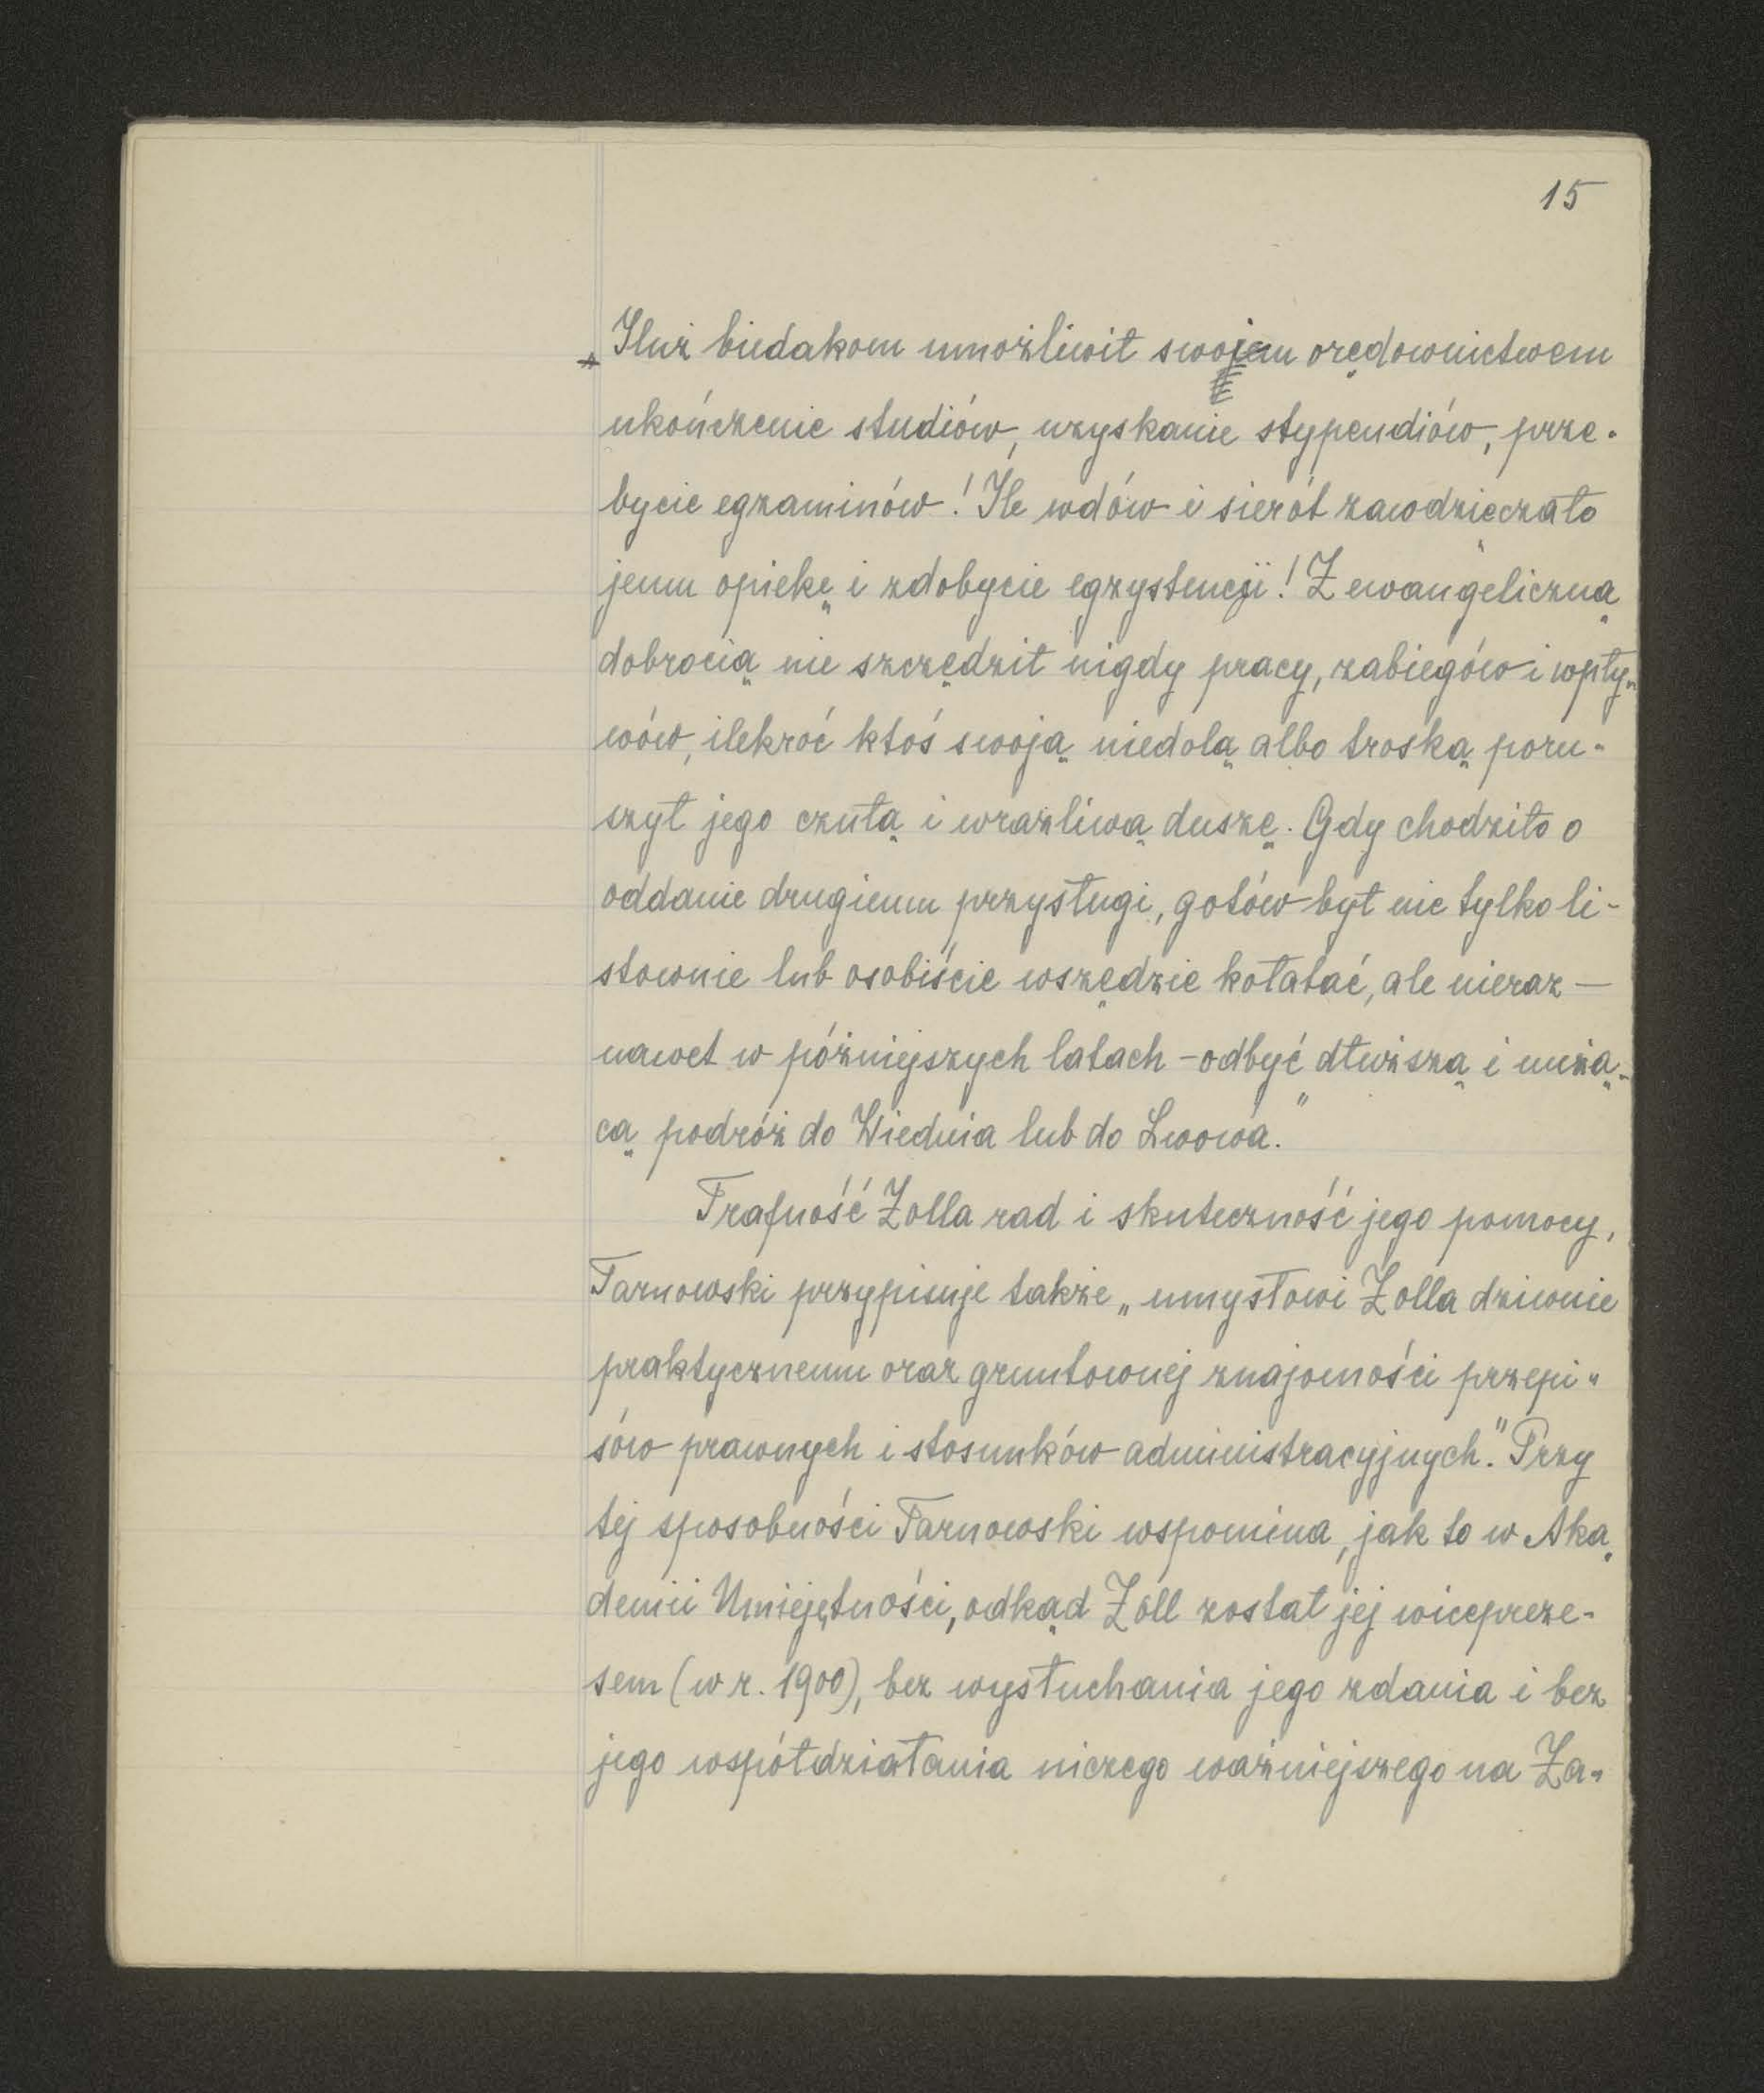 15
Iluż biedakom umożliwił swojem orędownictwem
ukończenie studiów, uzyskanie stypendiów, prze-
bycie egzaminów! Ile wdów i sierót zawdzięczało
jemu opiekę i zdobycie egzystencji! Z ewangeliczną
dobrocią nie szczędził nigdy pracy, zabiegów i wpły-
wów, ilekroć ktoś swoją niedolą albo troską poru-
szył jego czułą i wrażliwą duszę. Gdy chodziło o
oddanie drugiemu przysługi, gotów był nie tylko li-
stownie lub osobiście wszędzie kołatać, ale nieraz —
nawet w późniejszych latach - odbyć dłuższą i nużą-
cą podróż do Wiednia lub do Lwowa."
Trafność Zolla rad i skuteczność jego pomocy,
Tarnowski przypisuje także „umysłowi Zolla dziwnie
praktycznemu oraz gruntownej znajomości przepi-
sów prawnych i stosunków administracyjnych." Przy
tej sposobności Tarnowski wspomina, jak to w Aka-
demii Umiejętności, odkąd Zoll został jej wicepreze-
sem (w r. 1900), bez wysłuchania jego zdania i bez
jego współdziałania niczego ważniejszego na Za-